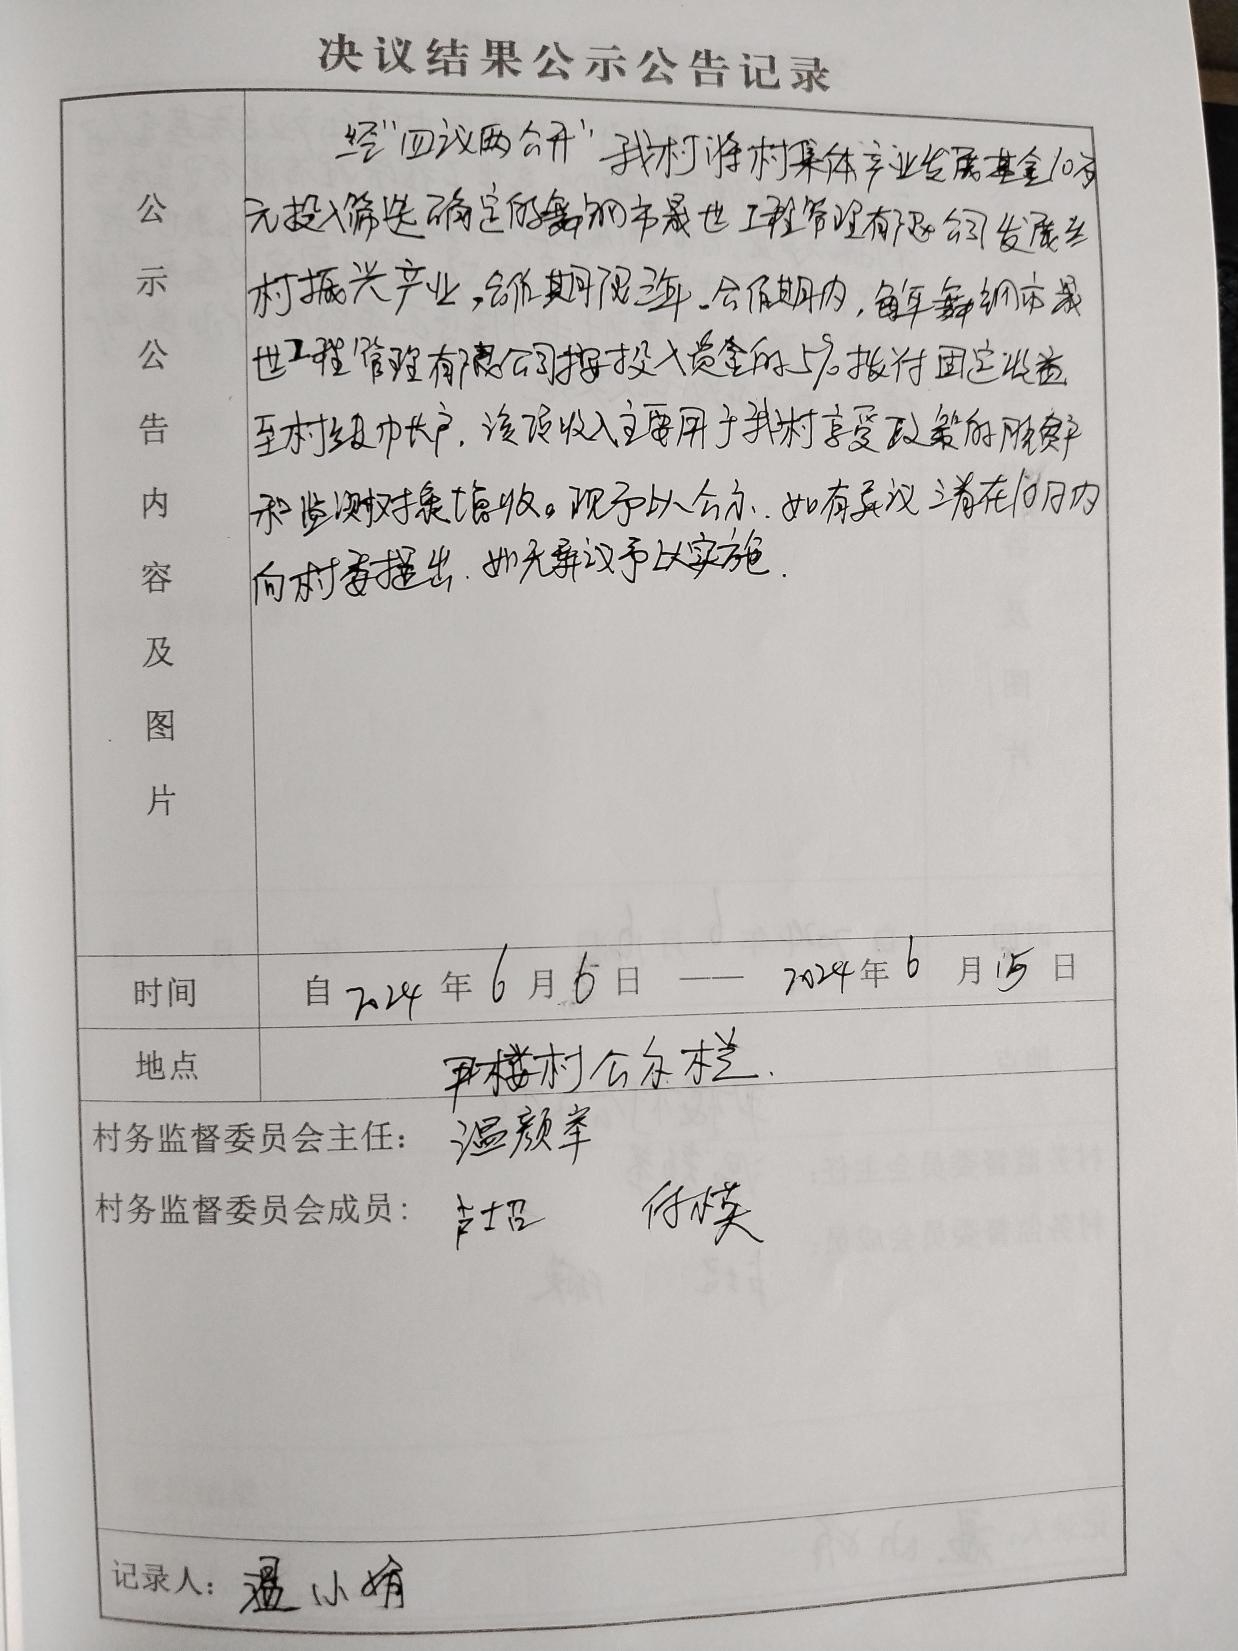 决议结果公示公告记录
公示公告内容及图片
经"四议两公开"我村将村集体产业发展基金10万
元投入筛选确定的舞钢市晟世工程管理有限公司发展乡
村振兴产业,合作期限三年。合作期内,每年舞钢市晟
世工程管理有限公司按投入资金的5%拨付固定收益
至村级帐户.该项收入主要用于我村享受政策的脱贫户
和监测对象增收。现予以公示.如有异议请在10日内
向村委提出.如无异议予以实施.
时间 自2024年6月6日——2024年6月15日
地点 尹楼村公示栏.
村务监督委员会主任: 温颜
村务监督委员会成员: 付
记录人: 温小娟